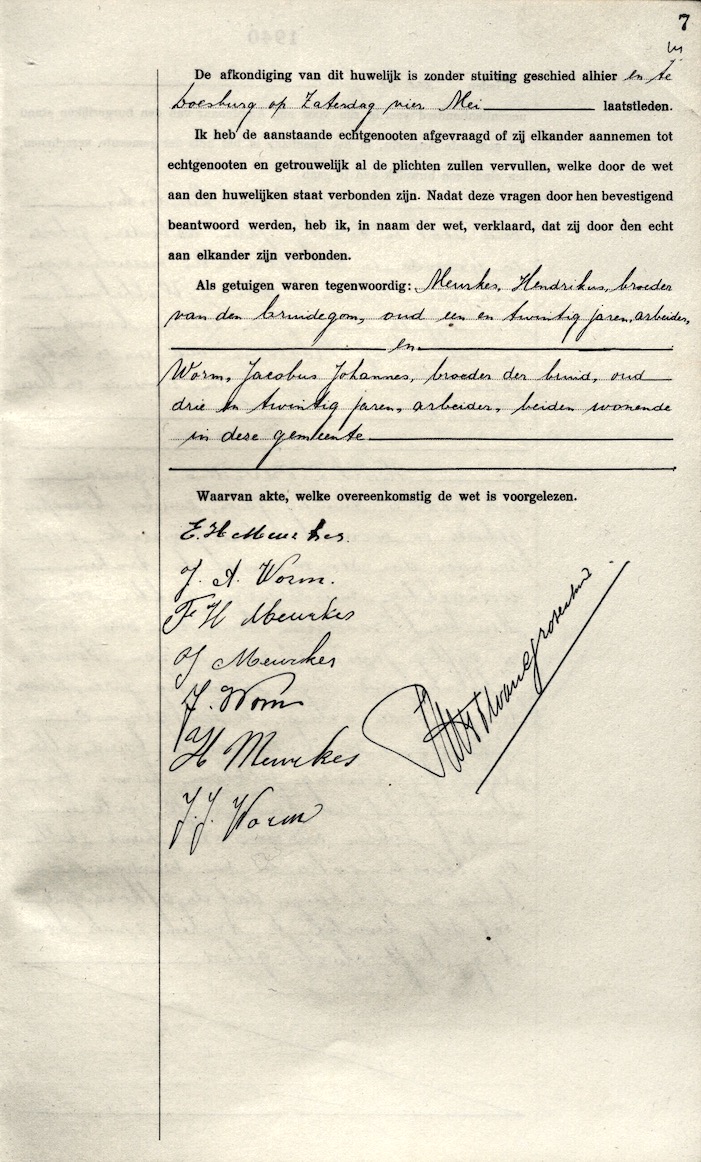 7
De afkondiging van dit huwelijk is zonder stuiting geschied alhier en te
Doesburg op Zaterdag vier Mei laatstleden.
Ik heb de aanstaande echtgenooten afgevraagd of zij elkander aannemen tot
echtgenooten en getrouwelijk al de plichten zullen vervullen, welke door de wet
aan den huwelijken staat verbonden zijn. Nadat deze vragen door hen bevestigend
beantwoord werden, heb ik, in naam der wet, verklaard, dat zij door den echt
aan elkander zijn verbonden.
Als getuigen waren tegenwoordig: Meurkes, Hendrikus, broeder
van den bruidegom, oud een en twintig jaren, arbeider,
en
Worm, Jacobus Johannes, broeder der bruid, oud
drie en twintig jaren, arbeider, beiden wonende
in deze gemeente
Waarvan akte, welke overeenkomstig de wet is voorgelezen.
E. H Meurkes.
J. A. Worm.
F H Meurkes
J Meurkes
J. Worm
H Meurkes
J. J. Worm